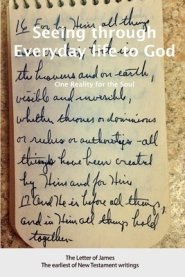 16 For by Him all things
Seeing through
Everyday life to God
the heavens and on earth,
One Reality for the Soul
visible and invisible,
whether thrones or dominions
or rulers or authorities - all
things have been created
by Him and for Him.
17 And He is before all things,
and in Him all things hold
together
The Letter of James
The earliest of New Testament writings